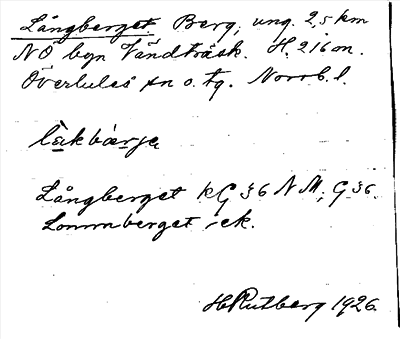 Långberget. Berg, ung. 2,5 km
NO byn Vändträsk. H. 216 m.
Överluleå sn o. tg. Norrb. l.
làkbærja
Långberget kG 36 NM, G 36.
Lommberget ek.
H Rutberg 1926.